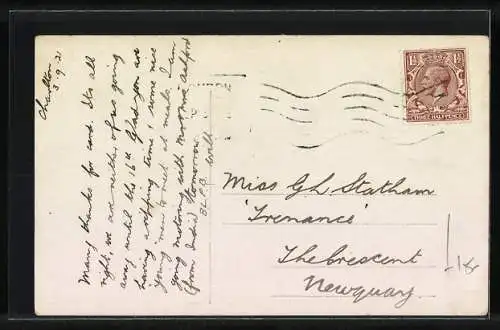 Charlton
3.9.21
Many thanks for card. Its all
right, we are neither of us going
away until the 16th. Glad you are
having a ripping time; some nice
young men to meet at meals. I am
going motoring with Mr & Mrs Ashford
(from India) tomorrow
with
1½D 1½D
THREE HALFPENCE
Miss G h Statham
'Trenance'
The Crescent
Newquay